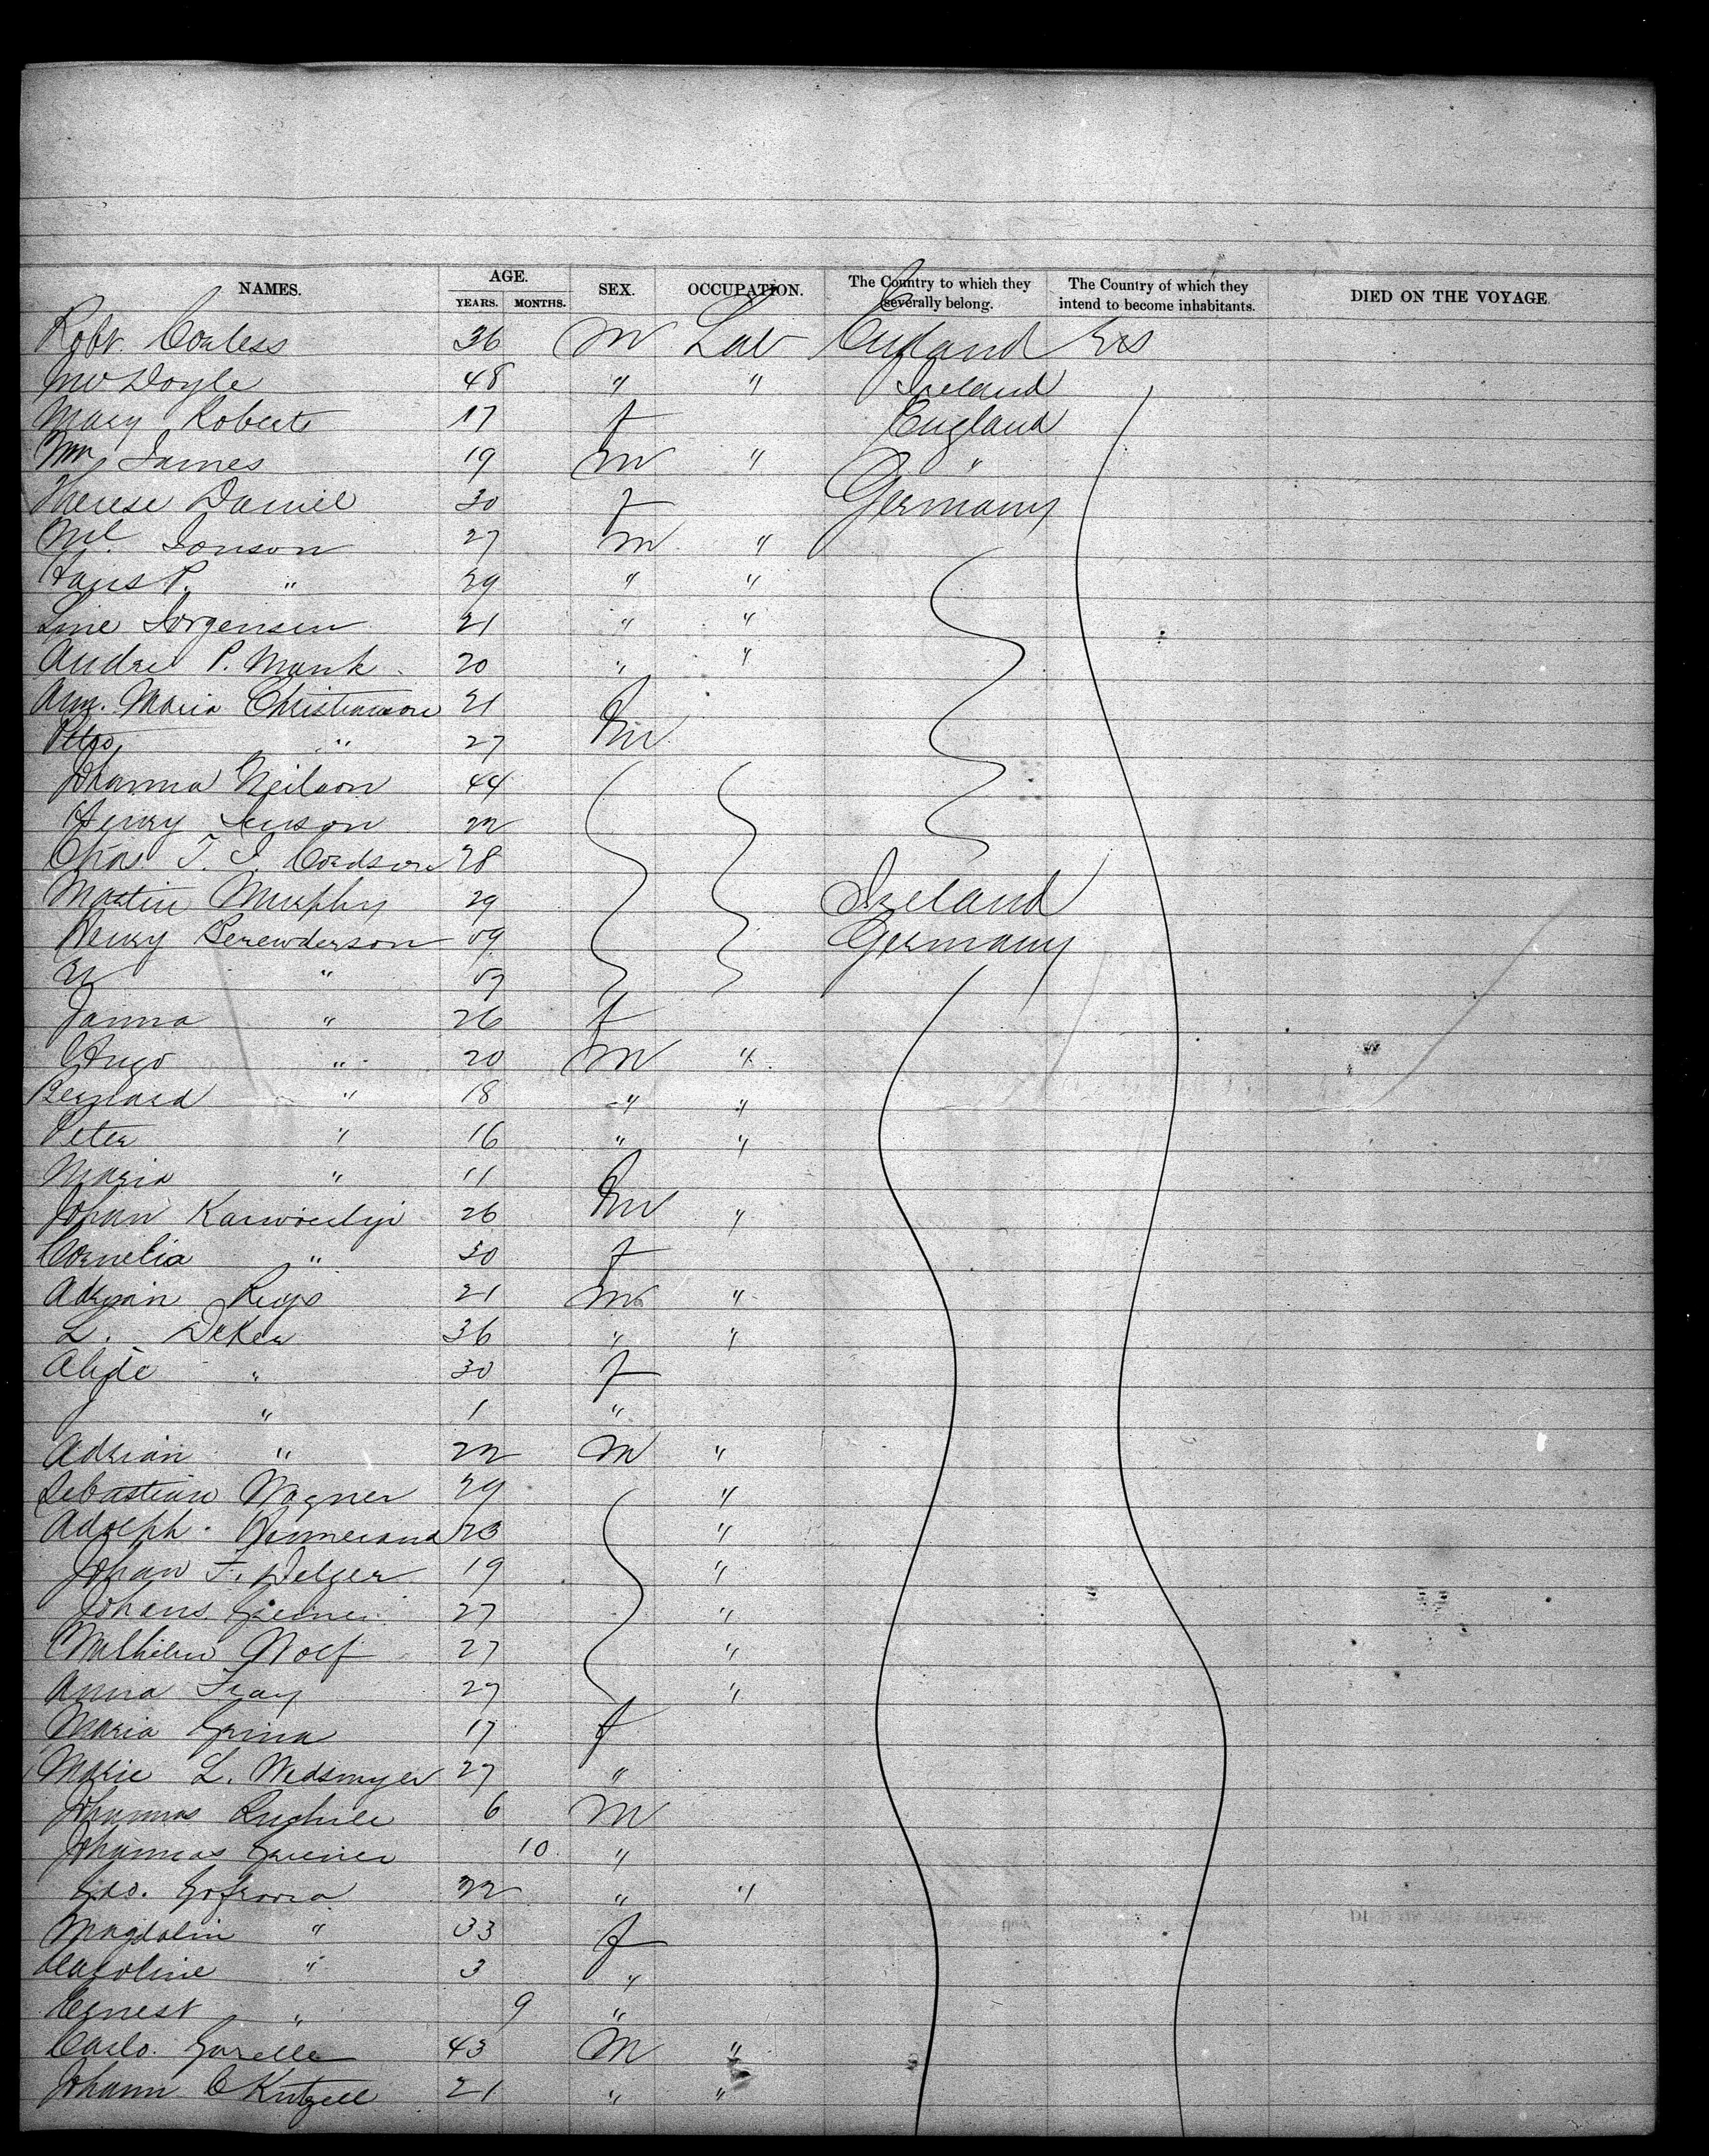 NAMES. AGE. SEX. OCCUPATION. The Country to which they severally belong. The Country of which they intend to become inhabitants. DIED ON THE VOYAGE.
YEARS. MONTHS.
Robt. Coaless 36 M Lab England
Doyle 48 " " Ireland
Mary Roberts 17 f England
Wm James 19 M " "
Therese Daniel 30 f Germany
Jonson 27 M "
Hans P. " 29 " "
Line Jorgensen 21 " "
Andre P. Munk 20 " "
Ann. Maria Christianson 21 f
" 27 M
Johanna Neilson 44
Henry Jenson 22
Chas. T. J. Cordson 28
Martin Murphy 29 Ireland
Henry 59 Germany
" 57
Janna " 26 f
Hugo " 20 M "
Bernard " 18 " "
Peter " 16 " "
Maria " 11 f
Johan 26 M "
Cornelia " 30 f
Adrian 21 M "
L. DeKer 36 " "
Alide " 30 f
J " 1 "
Adrian " 22 M "
Sebastian Wagner 29 "
Adolph 23 "
Johan F. Delger 19 "
Johans 27 "
Wolf 27 "
Anna 27 "
Maria Grina 17 f
Marie L. 27 "
Johannas 6 M
Johannas Greiner 10 "
Geo. 32 " "
Magdalin " 33 f
Caroline " 3 "
Ernest " 9 "
Carlo. Garelle 43 M "
Johann C Kutzell 21 " "